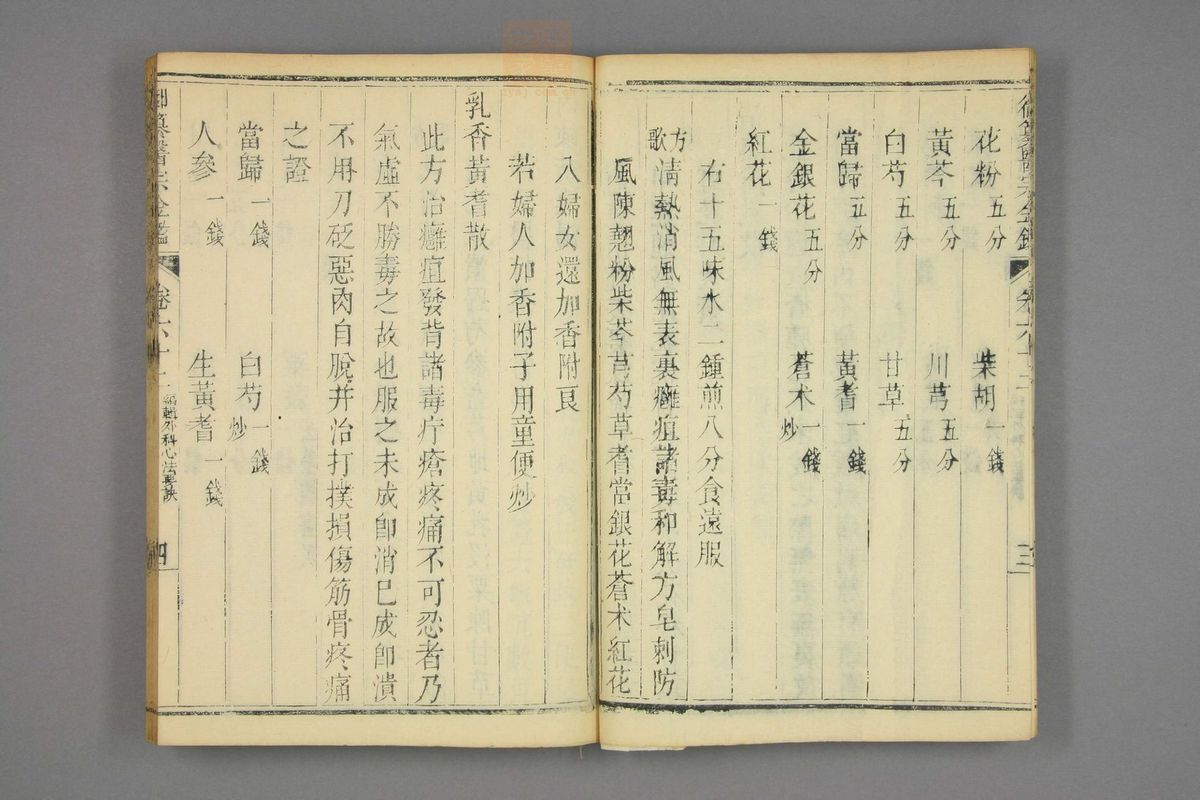 御纂醫宗金鑑 卷六十二 三
花粉五分 柴胡一錢
黃芩五分 川芎五分
白芍五分 甘草五分
當歸五分 黃耆一錢
金銀花五分 蒼朮炒一錢
紅花一錢
右十五味水二鍾煎八分食遠服
方歌 清熱消風無表裏癰疽諸毒和解方皂刺防
風陳翹粉柴芩芎芍草耆當銀花蒼朮紅花
入婦女還加香附良
若婦人加香附子用童便炒
乳香黃耆散
此方治癰疽發背諸毒疔瘡疼痛不可忍者乃
氣虛不勝毒之故也服之未成卽消已成卽潰
不用刀砭惡肉自脫并治打撲損傷筋骨疼痛
之證
當歸一錢 白芍炒一錢
人參一錢 生黃耆一錢
御纂醫宗金鑑 卷六十二 編輯外科心法要訣 四